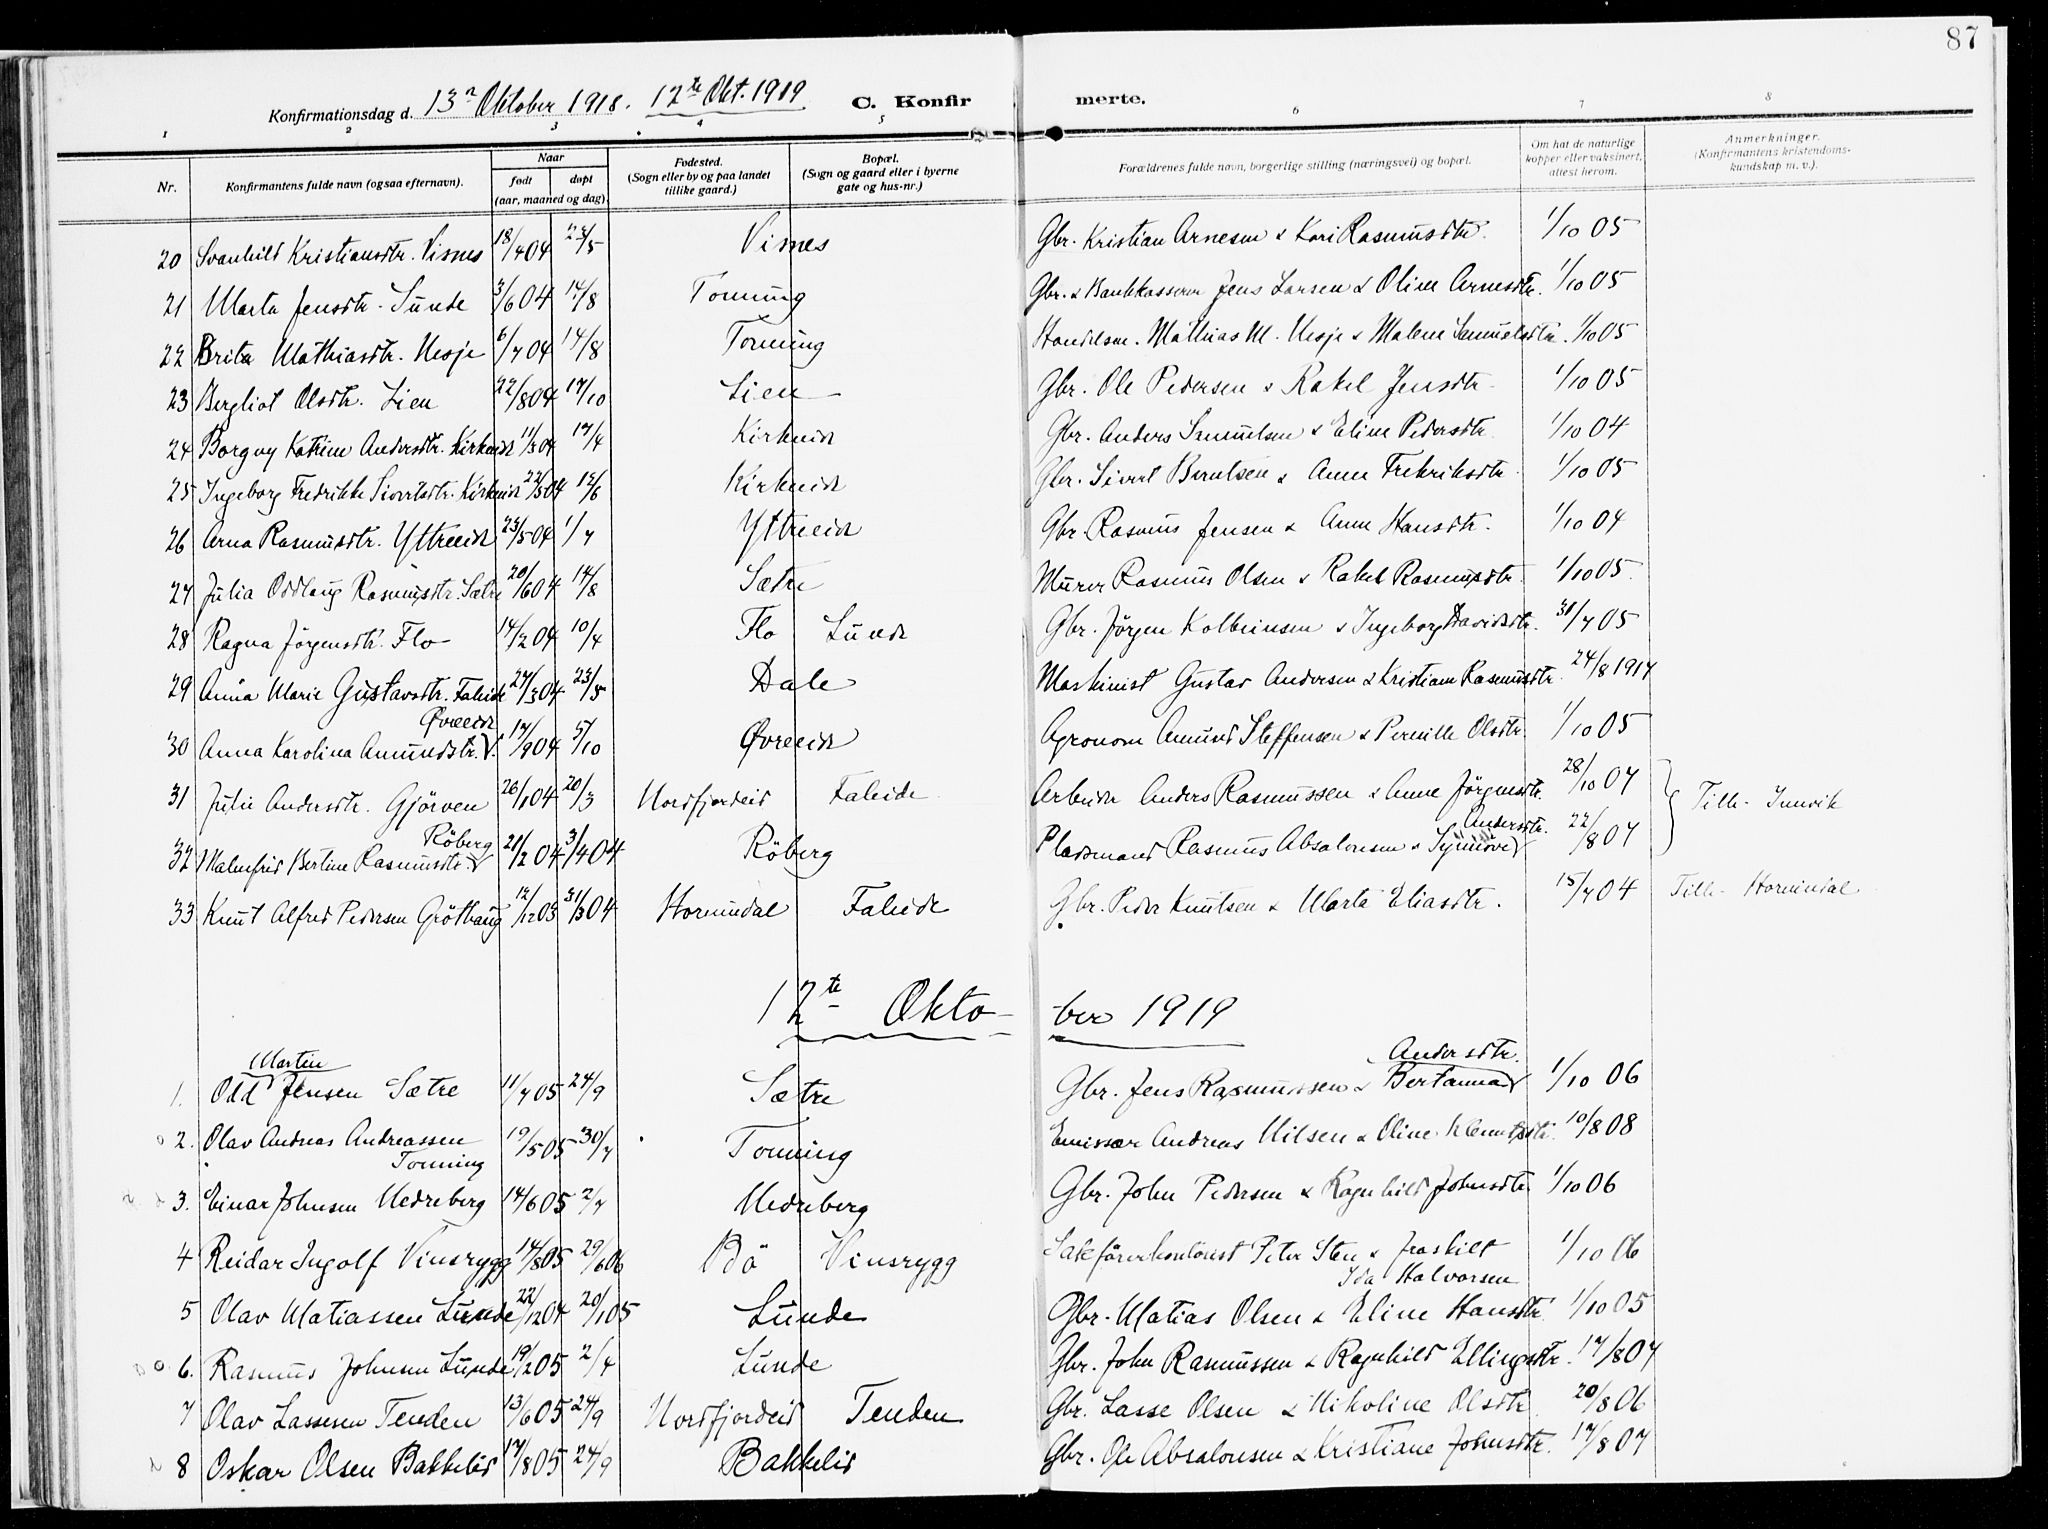 87
Konfirmationsdag d. 13n Oktober 1918. 12te Okt. 1919 C. Konfirmerte.
1 2 3 4 5 6 7 8
Nr. Konfirmantens fulde navn (ogsaa efternavn). Naar født døpt (aar, maaned og dag). Fødested. (Sogn eller by og paa landet tillike gaard.) Bopæl. (Sogn og gaard eller i byerne gate og hus-nr.) Forældrenes fulde navn, borgerlige stilling (næringsvei) og bopæl. Om hat de naturlige kopper eller vaksinert, attest herom. Anmerkninger. (Konfirmantens kristendomskundskap m. v.).
20 Svanhild Kristiansdtr. Visnes 18/4 04 23/5 Visnes Gbr. Kristian Arnesen & Kari Rasmusdtr. 1/10 05
21 Marta Jensdtr. Sunde 3/6 04 14/8 Tonning Gbr. & Bankkasserer Jens Larsen & Oline Arnesdtr. 1/10 05
22 Brita Mathiasdtr. Nesje 6/7 04 14/8 Tonning Handelsm. Mathias M. Nesje & Malene Samuelsdtr. 1/10 05
23 Bergliot Olsdtr. Lien 22/8 04 17/10 Lien Gbr. Ole Pedersen & Rakel Jensdtr. 1/10 05
24 Borgny Katrine Andersdtr. Kirkeide 11/3 04 17/4 Kirkeide Gbr. Anders Samuelsen & Eline Pedersdtr. 1/10 04
25 Ingeborg Fredrikke Sivertsdtr. Kirkeide 22/5 04 12/6 Kirkeide Gbr. Sivert Berntsen & Anne Fredriksdtr. 1/10 05
26 Arna Rasmusdtr. Yttreeide 23/5 04 1/7 Yttreeide Gbr. Rasmus Jensen & Anne Hansdtr. 1/10 04
27 Julia Oddlaug Rasmusdtr. Sætre 20/6 04 14/8 Sætre Murer Rasmus Olsen & Rakel Rasmusdtr. 1/10 05.
28 Ragna Jörgensdtr. Flo 14/2 04 10/4 Flo Lunde Gbr. Jörgen Kolbeinsen & Ingeborg Davidsdtr. 31/7 05
29 Anna Marie Gustavsdtr. Faleide 27/3 04 23/5 Dale Maskinist Gustav Andersen & Kristiane Rasmusdtr. 24/8 1917
30 Anna Karolina Amundsdtr. Øvreeide 17/9 04 5/10 Øvreeide Agronom Amund Steffensen & Pernille Olsdtr. 1/10 05
31 Julie Andersdtr. Gjörven 26/1 04 20/3 Nordfjordeid Faleide Arbeider Anders Rasmussen & Anne Jörgensdtr. 28/10 07 Tilh. Innvik
32 Malmfrid Bertine Rasmusdtr. Röberg 21/2 04 3/4 04 Röberg Pladsmand Rasmus Absalonsen & Synnöve Andersdtr. 22/8 07
33 Knut Alfred Pedersen Gröthaug 12/12 03 31/3 04 Hornindal Faleide Gbr. Peder Knutsen & Marta Eliasdtr. 15/7 04 Tilh. Hornindal
12te Oktober 1919
1. Odd Martin Jensen Sætre 11/7 05 24/9 Sætre Gbr. Jens Rasmussen & Bertanna Andersdtr. 1/10 06
2. Olav Andreas Andreassen Tonning 19/5 05 30/7 Tonning Emissær Andreas Nilsen & Oline Klemetsdtr. 10/8 08
3. Einar Johnsen Nedreberg 14/6 05 2/7 Nedreberg Gbr. John Pedersen & Ragnhild Johnsdtr. 1/10 06
4 Reidar Ingolf Vinsrygg 14/8 05 29/6 06 Bö Vinsrygg Sakförerkontorist Peter Sten & fraskilt Ida Halvorsen 1/10 06
5 Olav Matiassen Lunde 22/12 04 20/1 05 Lunde Gbr. Matias Olsen & Eline Hansdtr. 1/10 05
6. Rasmus Johnsen Lunde 19/2 05 2/4 Lunde Gbr. John Rasmussen & Ragnhild Ellingsdtr. 17/8 07
7 Olav Lassesen Tenden 13/6 05 24/9 Nordfjordeid Tenden Gbr. Lasse Olsen & Nikoline Olsdtr. 20/8 06
8 Oskar Olsen Bakkelid 17/8 05 24/9 Bakkelid Gbr. Ole Absalonsen & Kristiane Johnsdtr. 17/8 07